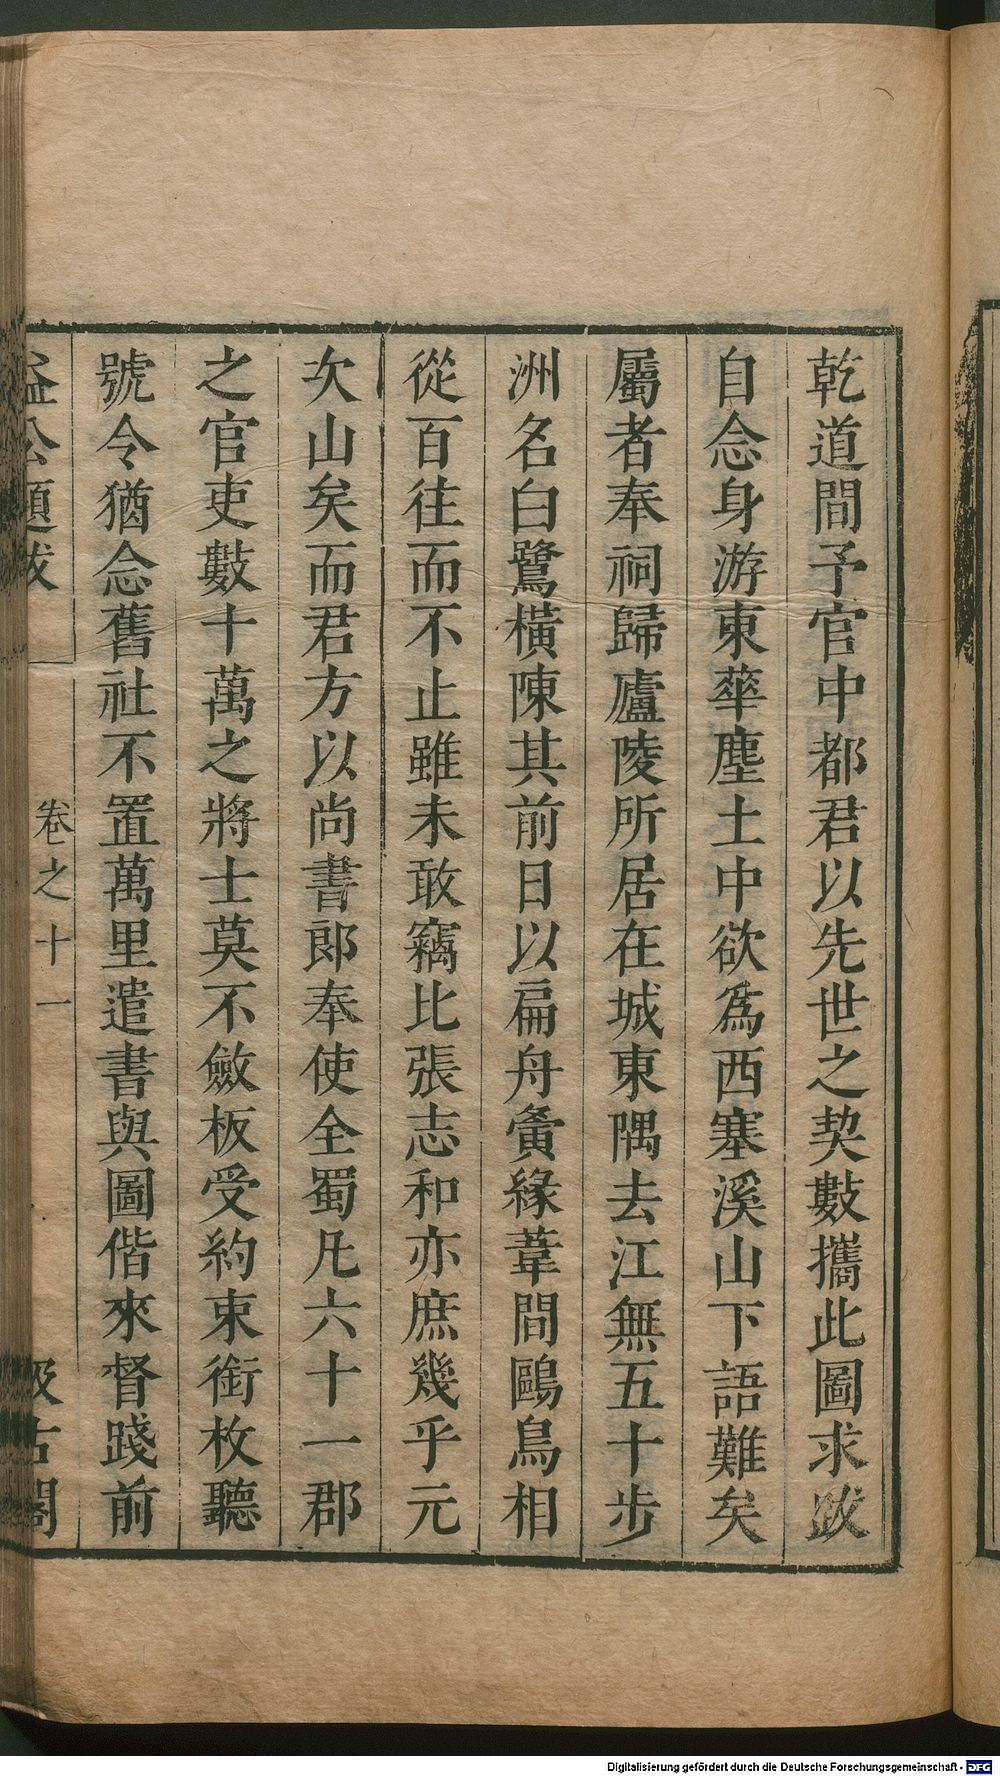 乾道間予官中都君以先世之契數攜此圖求跋
自念身游東華塵土中欲爲西塞溪山下語難矣
屬者奉祠歸廬陵所居在城東隅去江無五十步
洲名白鷺橫陳其前日以扁舟夤緣葦間鷗鳥相
從百往而不止雖未敢竊比張志和亦庶幾乎元
次山矣而君方以尚書郎奉使全蜀凡六十一郡
之官吏數十萬之將士莫不斂板受約束銜枚聽
號令猶念舊社不置萬里遣書與圖偕來督踐前
益公題跋 卷之十一 汲古閣
Digitalisierung gefördert durch die Deutsche Forschungsgemeinschaft - DFG